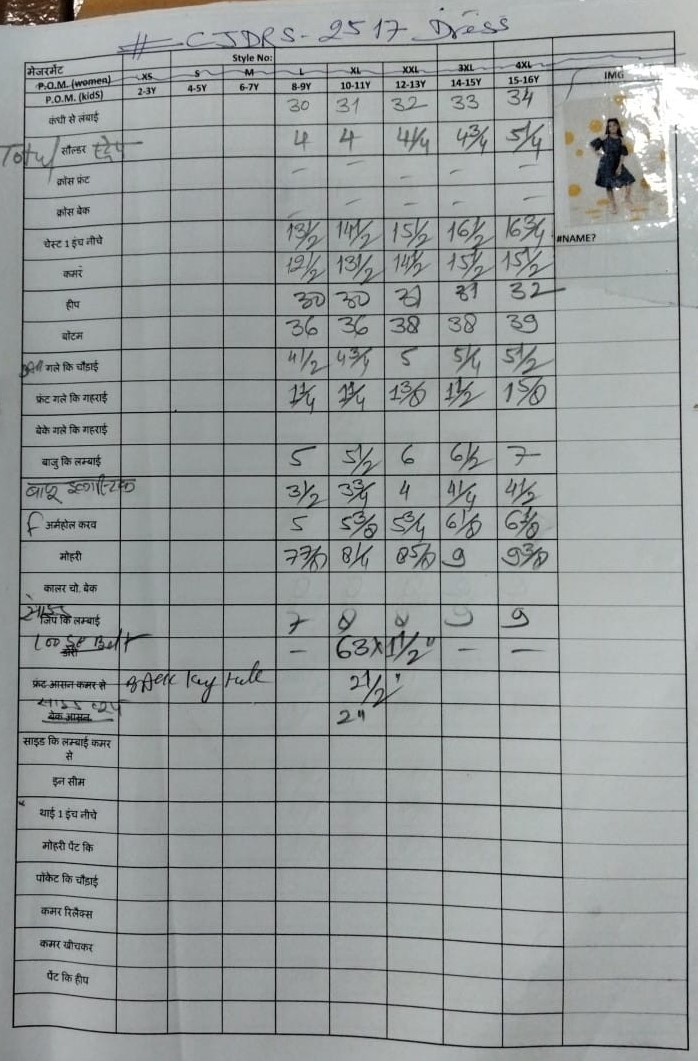 # CJDRS-2517 Dress
Style No:
मेजरमेंट
P.O.M. (women) XS S M L XL XXL 3XL 4XL IMG
P.O.M. (kidS) 2-3Y 4-5Y 6-7Y 8-9Y 10-11Y 12-13Y 14-15Y 15-16Y
कंधी से लंबाई 30 31 32 33 34
Total सौल्डर स्ट्रेप 4 4 4 1/4 4 3/4 5 1/4
क्रोस फ्रंट – – – – –
क्रोस बेक – – – – –
चेस्ट 1 इंच नीचे 13 1/2 14 1/2 15 1/2 16 1/2 16 3/4
#NAME?
कमर 12 1/2 13 1/2 14 1/2 15 1/2 15 1/2
हीप 30 30 31 31 32
बोटम 36 36 38 38 39
गले कि चौडाई 4 1/2 4 3/4 5 5 1/4 5 1/2
फ्रंट गले कि गहराई 1 1/4 1 1/4 1 3/8 1 1/2 1 5/8
बेके गले कि गहराई
बाजु कि लम्बाई 5 5 1/2 6 6 1/2 7
बाजू इलास्टिक 3 1/2 3 3/4 4 4 1/4 4 1/2
f अर्महोल करव 5 5 3/8 5 3/4 6 1/8
मोहरी 7 7/8 8 1/4 8 5/8 9 9 3/8
कालर चो. बेक
साइड जिप कि लम्बाई 7 8 8 9 9
Loose Belt – 63x1 1/2" – –
फ्रंट आसन कमर से Back key hole 2 1/2"
बेक आसन 2"
साइड कि लम्बाई कमर
से
इन सीम
थाई 1 इंच नीचे
मोहरी पेंट कि
पोकेट कि चौडाई
कमर रिलैक्स
कमर खीचकर
पेंट कि हीप